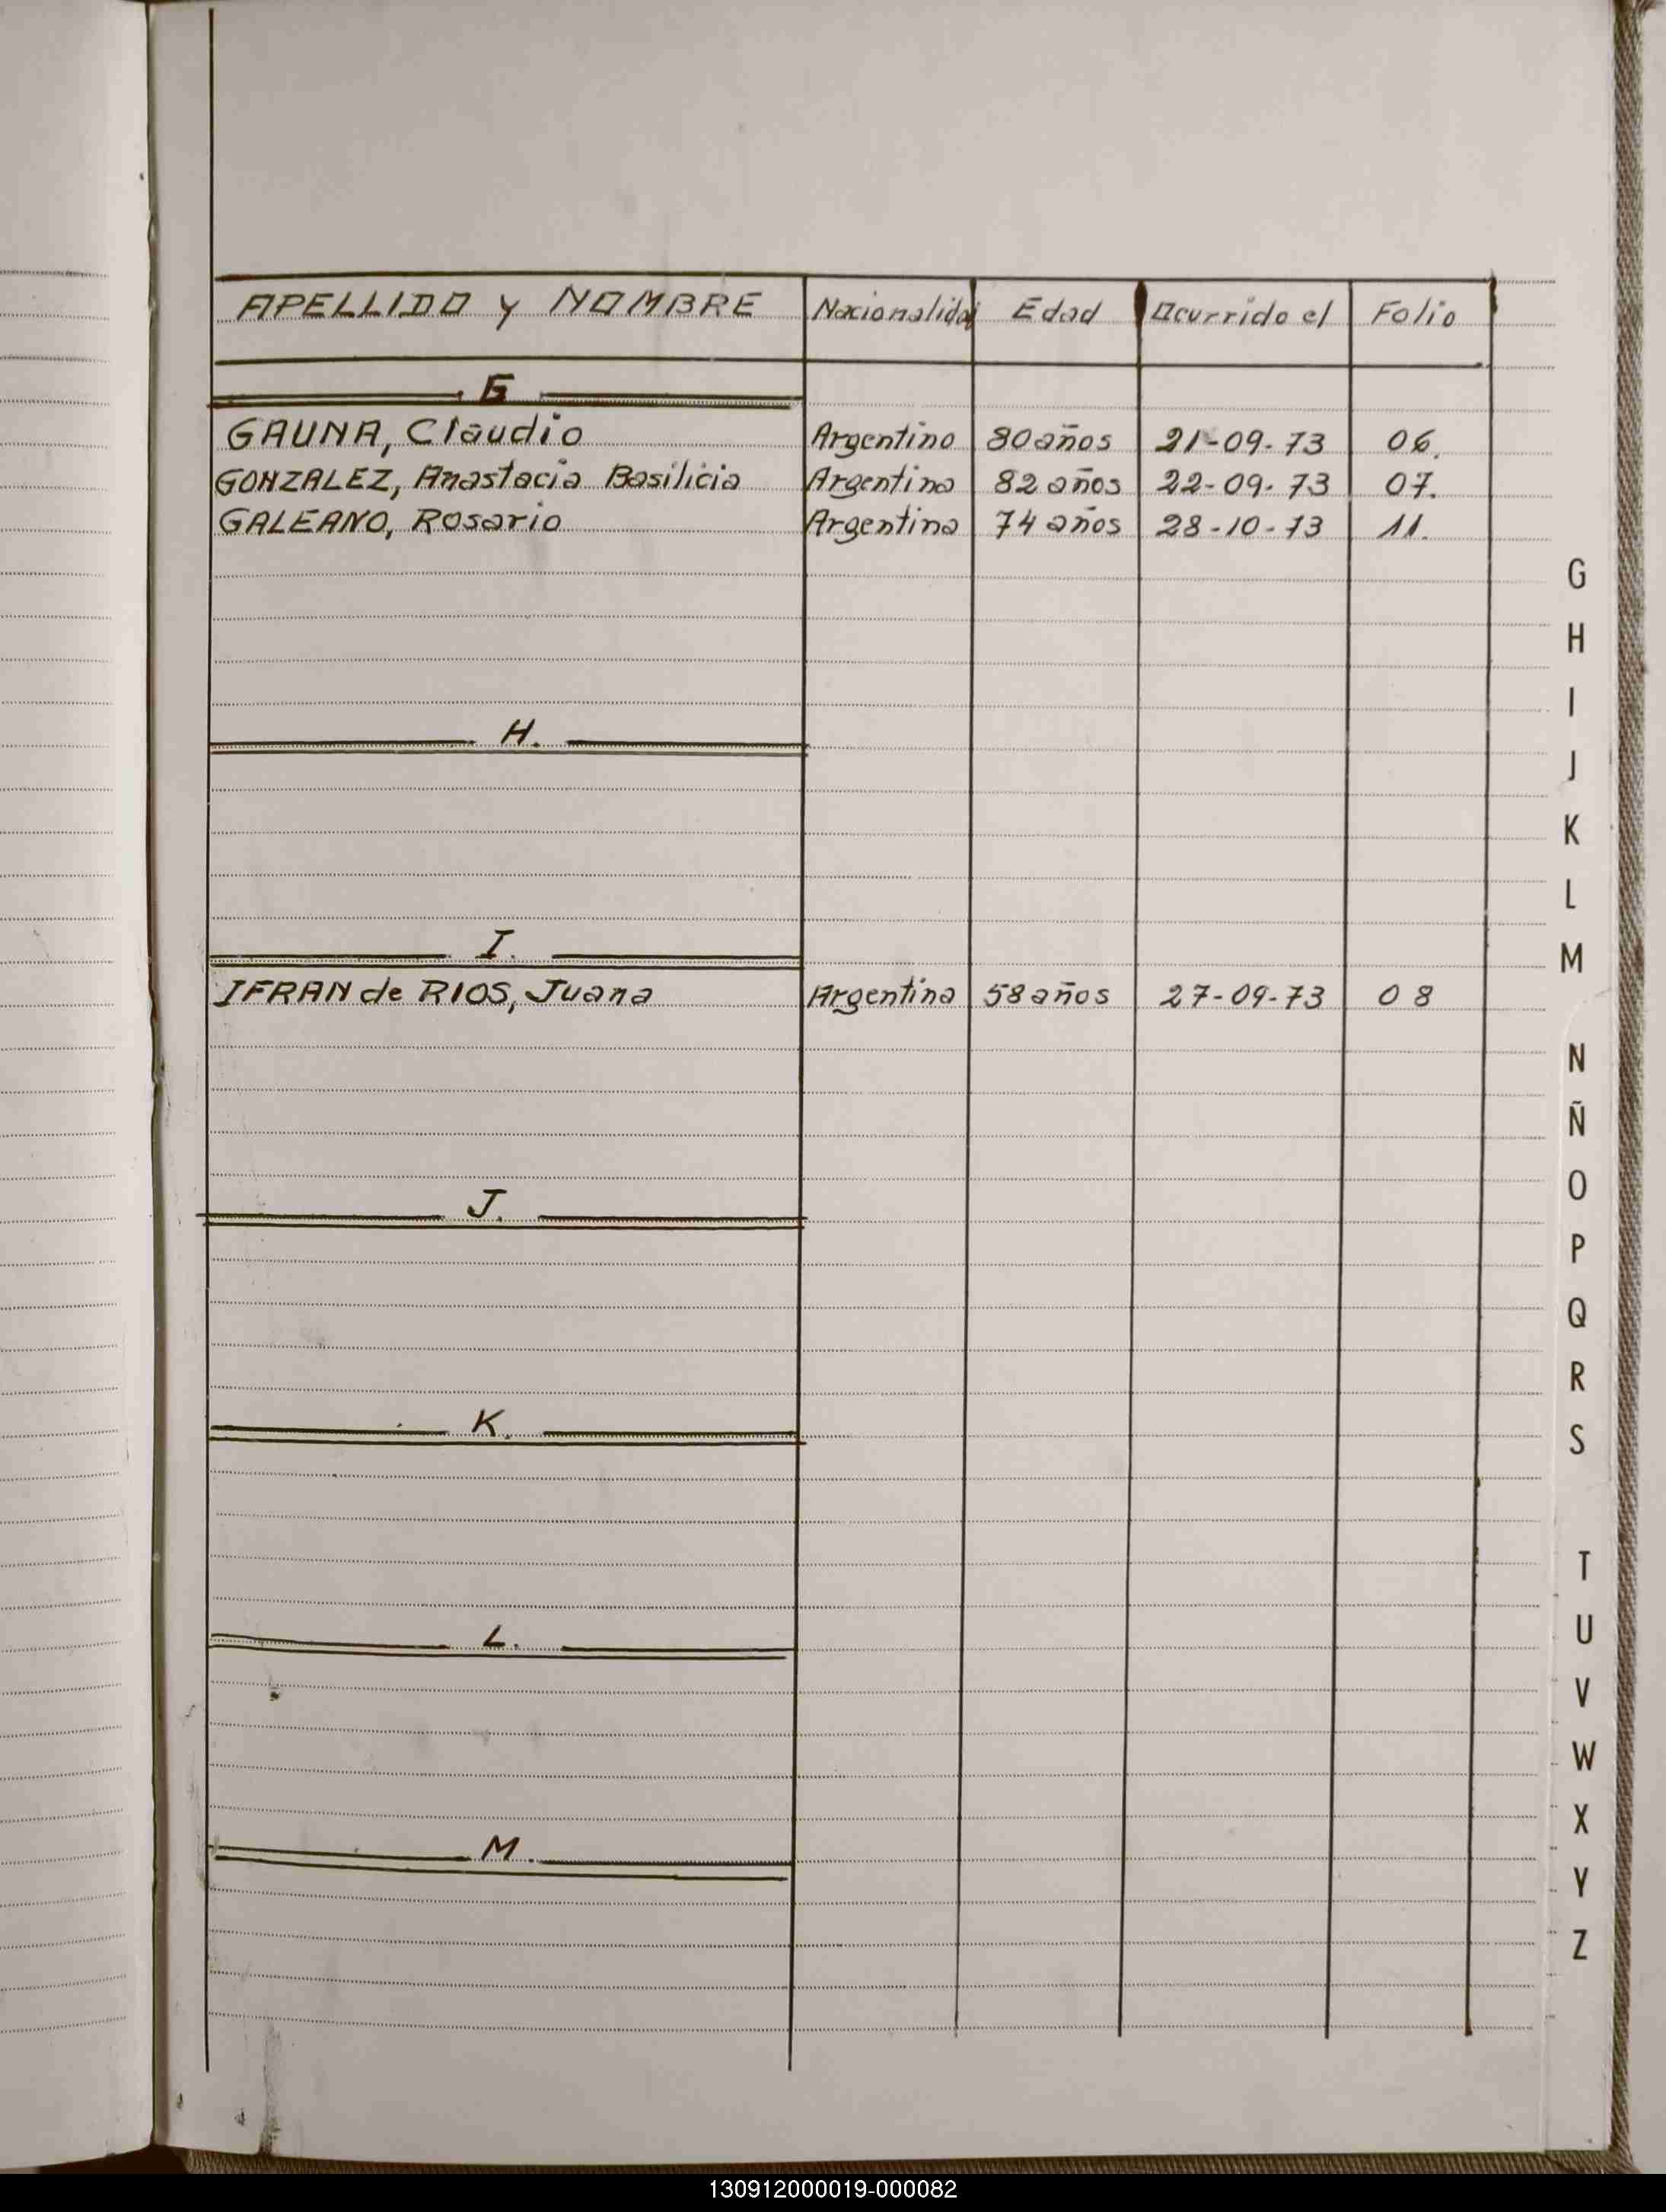 APELLIDO y NOMBRE Nacionalidad Edad Ocurrido el Folio
G
GAUNA, Claudio Argentino 80 años 21-09-73 06.
GONZALEZ, Anastacia Basilicia Argentina 82 años 22-09-73 07.
GALEANO, Rosario Argentina 74 años 28-10-73 11.
H.
I.
IFRAN de RIOS, Juana Argentina 58 años 27-09-73 08
J.
K.
L.
M.
G
H
I
J
K
L
M
N
Ñ
O
P
Q
R
S
T
U
V
W
X
Y
Z
130912000019-000082